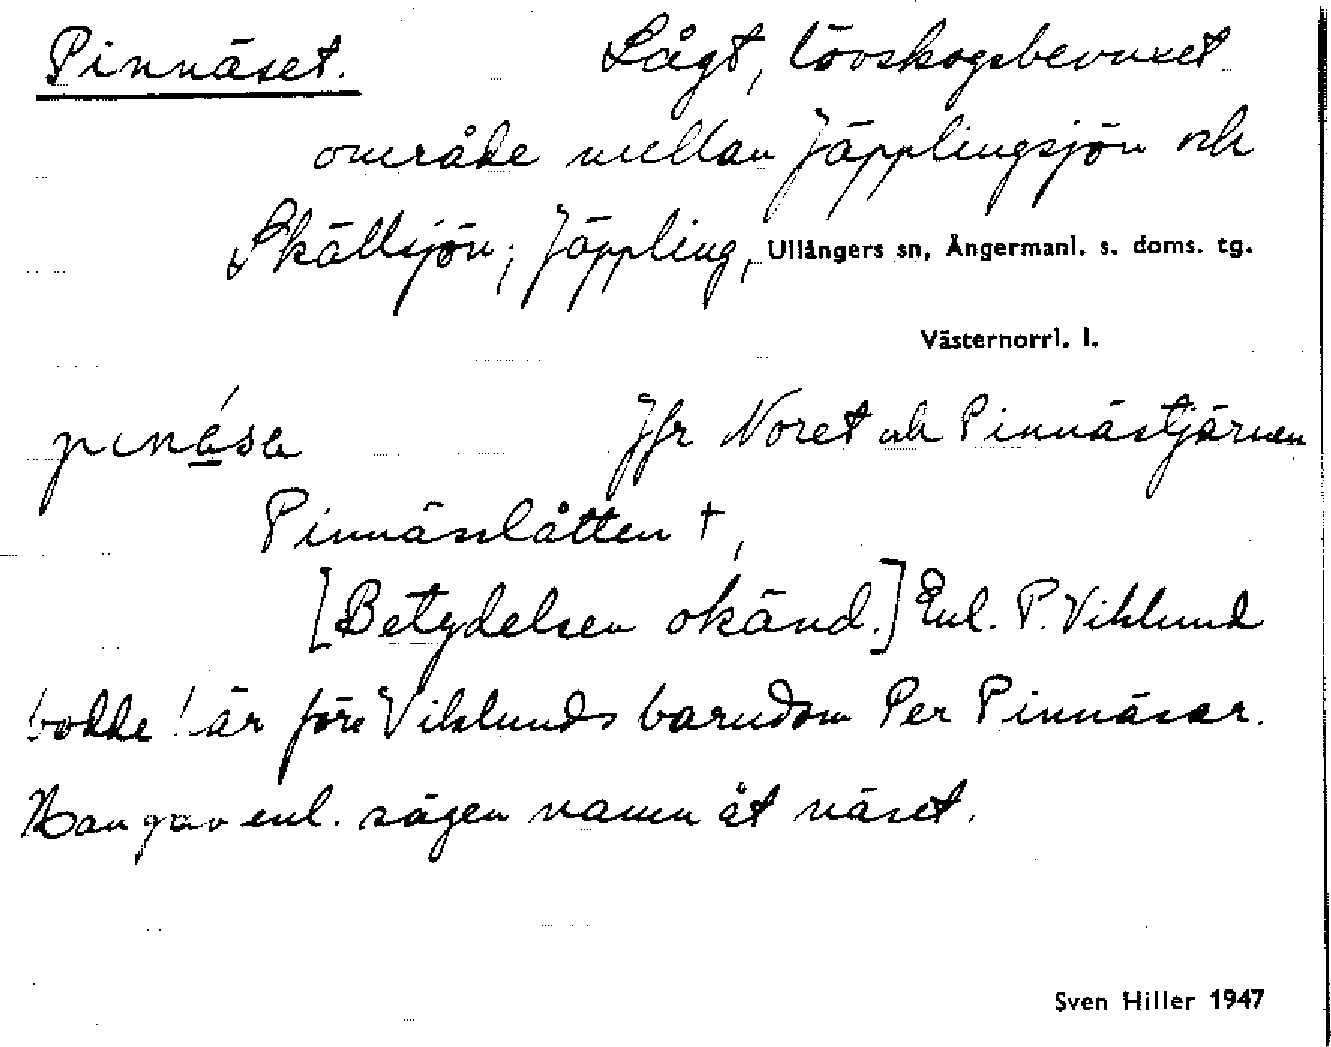 Pinnäset. Lågt, lövskogsbevuxet
område mellan Jäpplingsjön och
Skällsjön; Jäppling, Ullångers sn, Ångermanl. s. doms. tg.
Västernorrl. l.
Jfr Noret och Pinnästjärnen
Pinnässlåtten †,
[Betydelsen okänd.] Enl. P. Viklund
bodde här före Viklunds barndom Per Pinnäsar.
Han gav enl. sägen namn åt näset.
Sven Hiller 1947